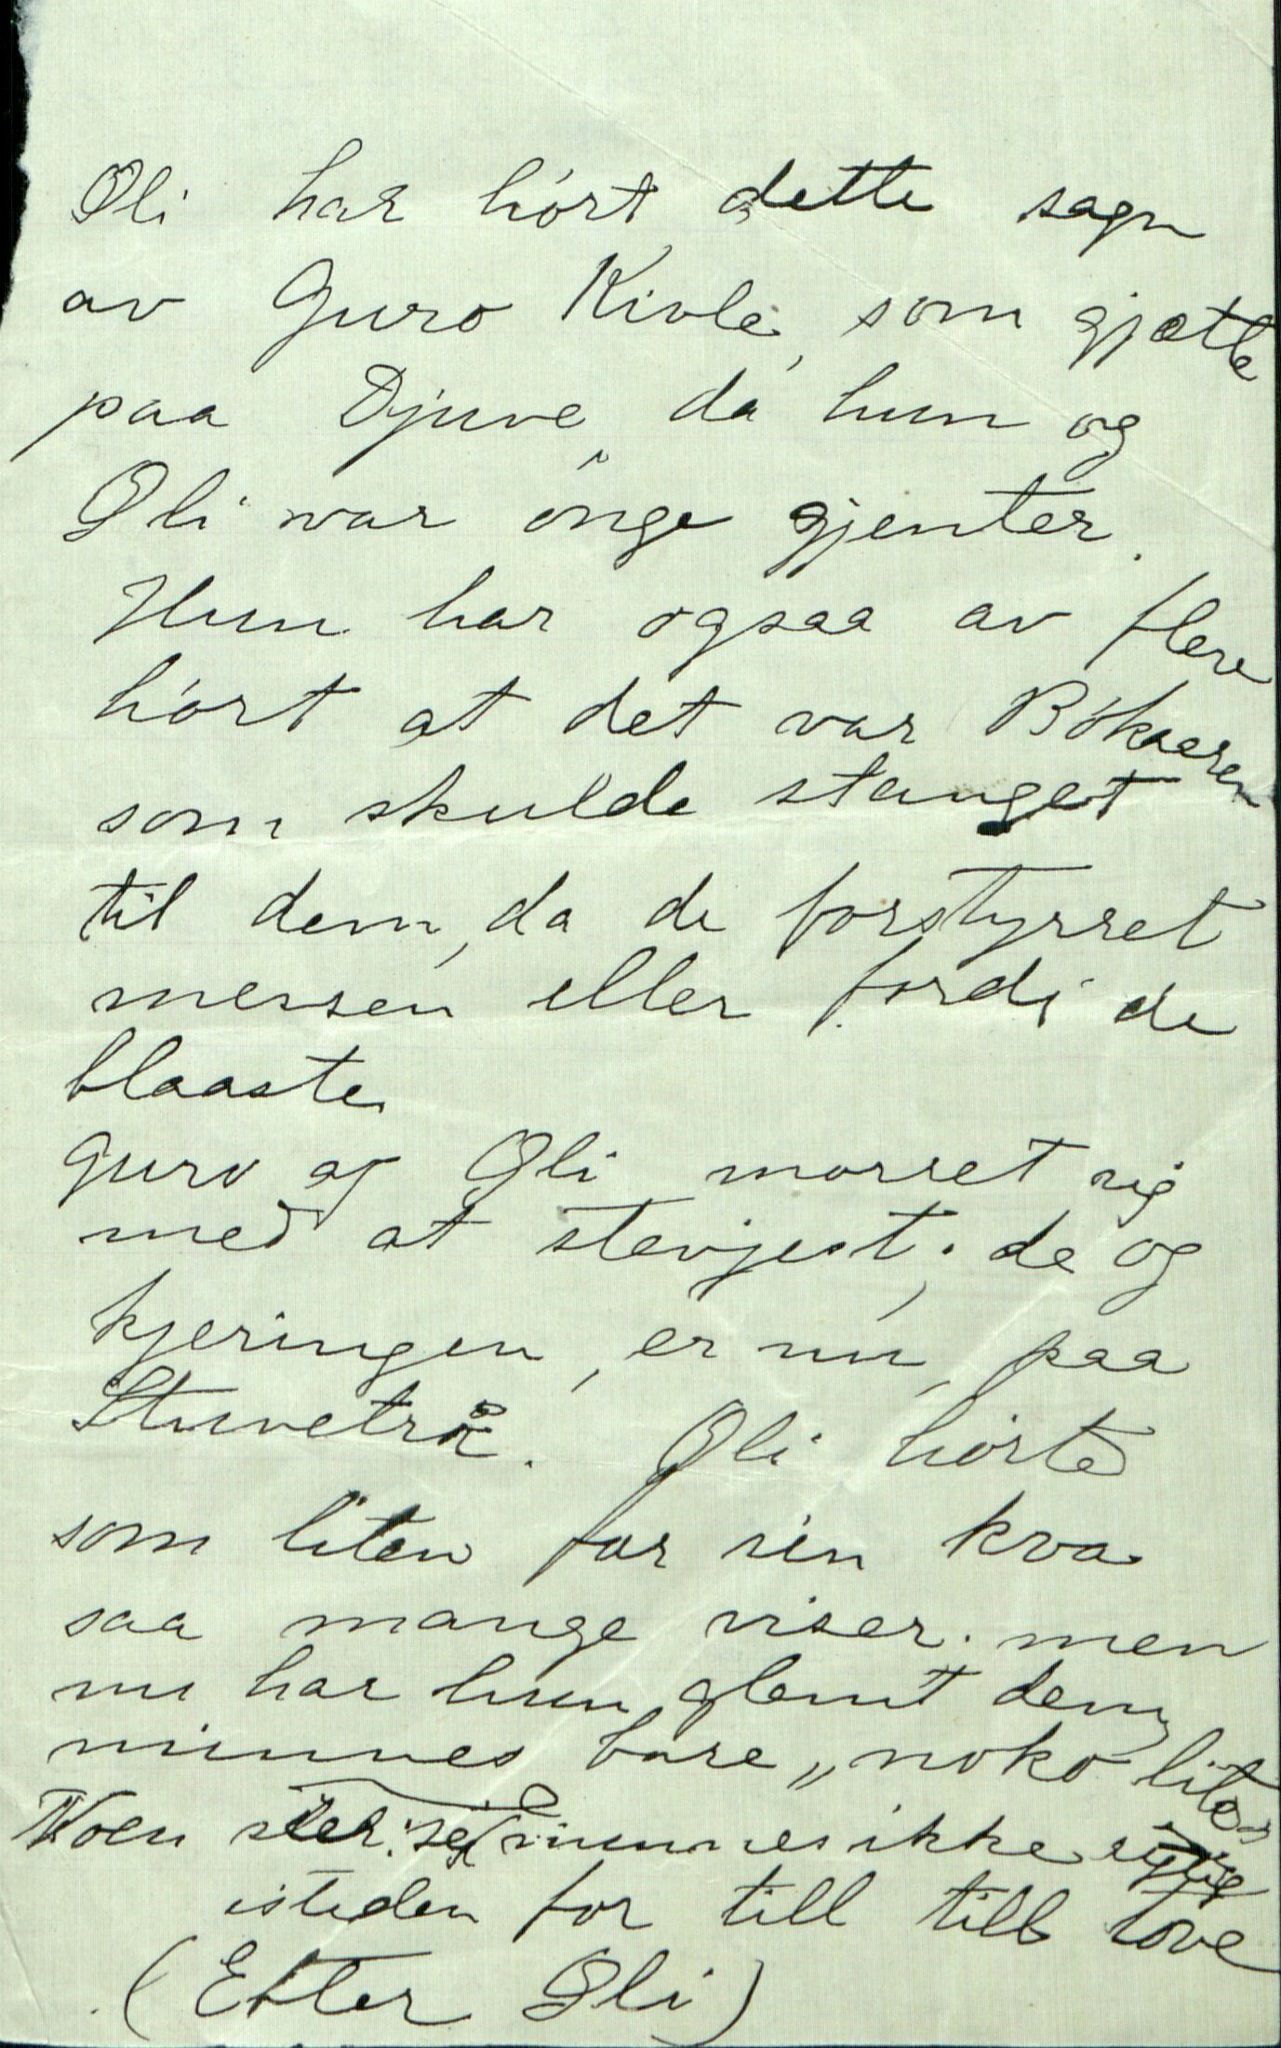 Oli har hört dette sagn
av Guro Kivle, som gjætte
paa Djuve da hun og
Oli var önge gjenter.
Hun har ogsaa av flere
hört at det var Bökaeren
som skulde stanget
til dem, da de forstyrret
messen eller fordi de
blaaste
Guro og Oli morret sig
med at stevjest; de og
kjeringen, er nu, paa
Stuvetrø. Oli hörte
som liten far sin kva
saa mange viser. men
nu har hun glemt dem
minnes bare „noko lite"
Noen minnes ikke
isteden for till till tove
(Etter Oli)